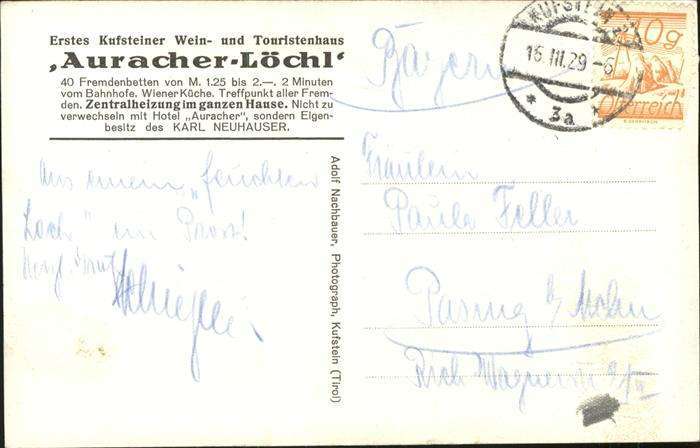 Erstes Kufsteiner Wein- und Touristenhaus
‚Auracher-Löchl‘
40 Fremdenbetten von M. 1.25 bis 2.—. 2 Minuten
vom Bahnhofe. Wiener Küche. Treffpunkt aller Frem-
den. Zentralheizung im ganzen Hause. Nicht zu
verwechseln mit Hotel „Auracher“, sondern Eigen-
besitz des KARL NEUHAUSER.
Aus einem „feuchten
Loch“ ein Prost!
Herzl. Gruß
Adolf Nachbauer, Photograph, Kufstein (Tirol)
Bayern
KUFSTEIN
16.III.29-6
* 3a *
10g
Österreich
Fräulein
Paula Feller
Pasing b/Mchn
Rich Wagnerstr